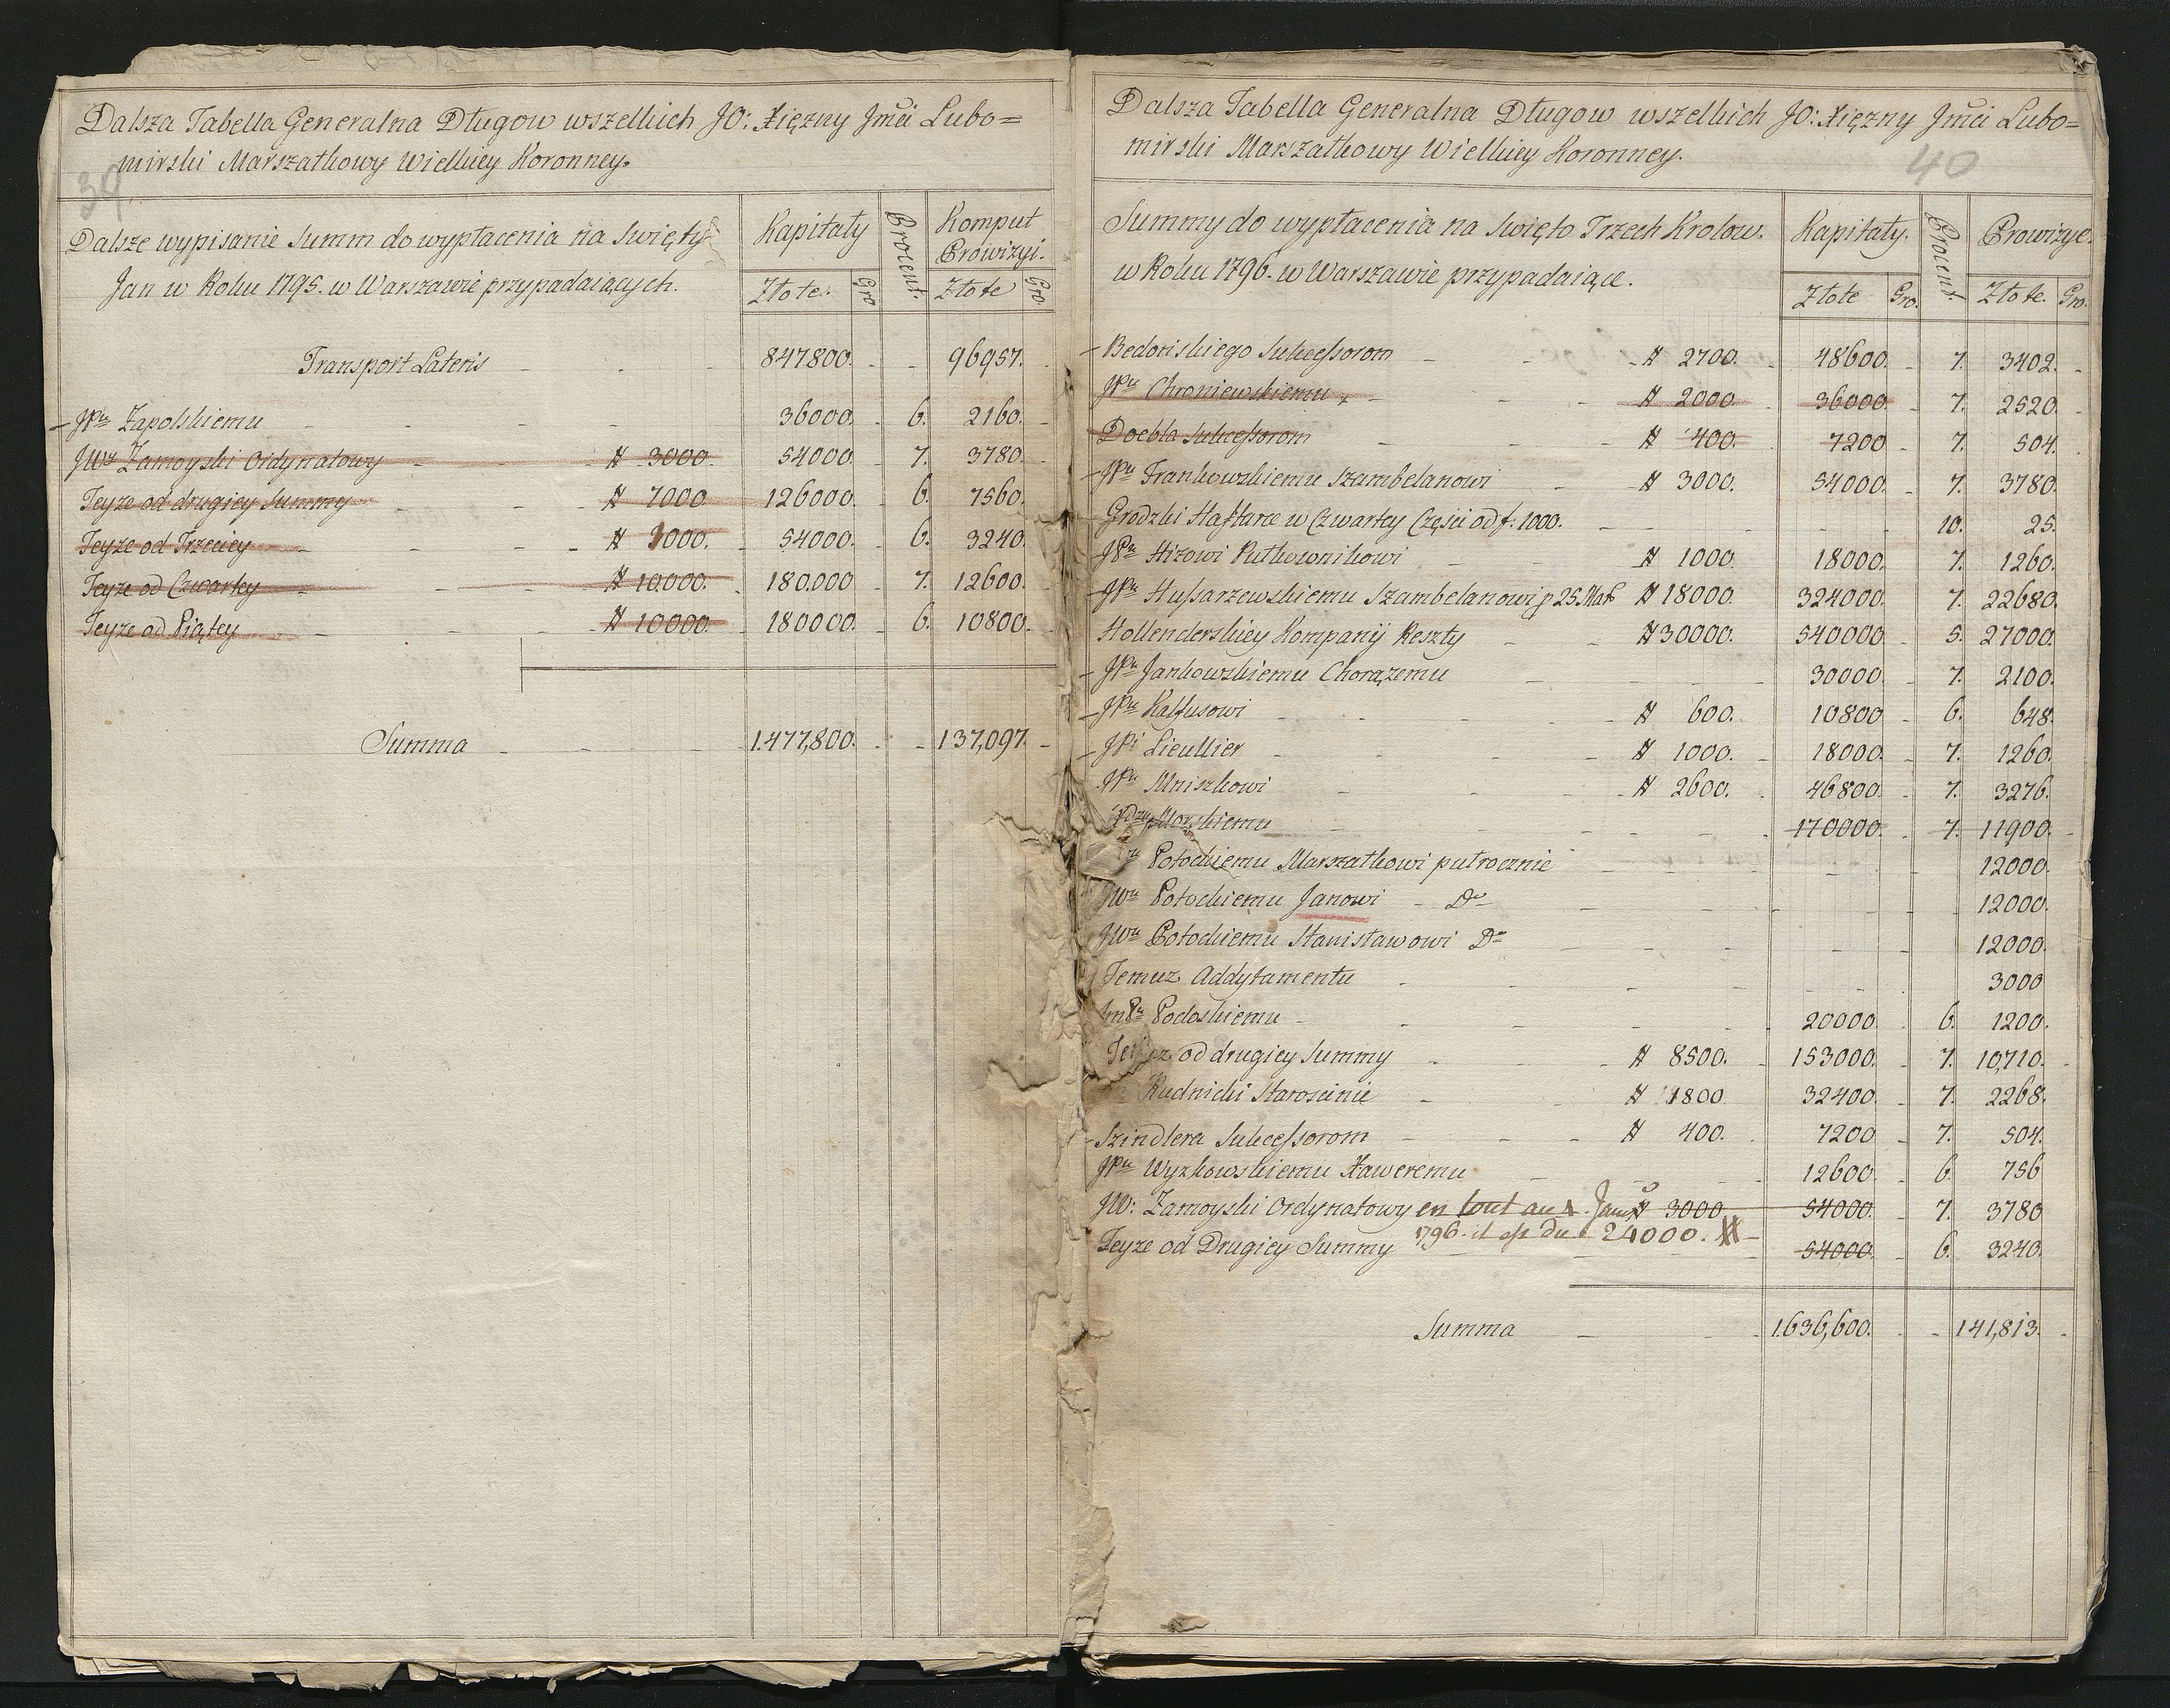 Dalsza Tabella Generalna Długow wszelkich JO: Xiężny Jmći Lubo=
mirski Marszałkowy Wielkiey Koronney.
39
Dalsze wypisanie Summ do wypłacenia na Swięty
Jan w Roku 1795. w Warszawie przypadaiących.
Kapitały Procent. Komput Prowizyi.
Złote. Gro. Złote Gro.
Transport Lateris 847800. 96957.
JPu Zapolskiemu 36000. 6. 2160.
JWy Zamoyski Ordynatowy # 3000. 54000. 7. 3780.
Teyże od drugiey Summy # 7000 126000. 6. 7560.
Teyże od Trzeciey # 3000. 54000. 6. 3240.
Teyże od Czwartey # 10000. 180.000 7. 12600.
Teyże od Piątey # 10000. 180000. 6. 10800.
Summa 1.477,800. 137,097.
Dalsza Tabella Generalna Długow wszelkich JO: Xiężny Jmći Lubo=
mirski Marszałkowy Wielkiey Koronney.
40
Summy do wypłacenia na Swięto Trzech Krolow.
w Roku 1796. w Warszawie przypadaiące.
Kapitały. Procent. Prowizye.
Złote Gro. Złote. Gro.
Bedońskiego Sukcessorom # 2700. 48600. 7. 3402.
JPu Chroniewskiemu # 2000. 36000. 7. 2520.
Doebla Sukcessorom # 400. 7200 7. 504.
JPu Frankowskiemu Szambelanowi # 3000. 54000. 7. 3780.
Grodzki Haftarce w Czwartey Części od f. 1000. 10. 25.
JPu Hizowi Pułkownikowi # 1000. 18000. 7. 1260.
JPu Hussarzewskiemu Szambelanowi p 25. Mar # 18000. 324000. 7. 22680.
Hollenderskiey Kompanij Reszty # 30000. 540000. 5. 27000.
JPu Jankowskiemu Chorążemu 30000. 7. 2100.
JPu Kalfusowi # 600. 10800 6. 648.
JPi Lieullier # 1000. 18000. 7. 1260.
JPu Mniszkowi # 2600. 46800. 7. 3276.
Morskiemu 170000. 7. 11900.
Potockiemu Marszałkowi pułrocznie 12000.
JWu Potockiemu Janowi Do 12000.
JWu Potockiemu Stanisławowi Do 12000.
Temuz Addytamentu 3000
JmPu Podoskiemu 20000. 6. 1200.
od drugiey Summy # 8500. 153000. 7. 10,710.
Rudnicki Starościnie # 1800 32400. 7. 2268.
Szindlera Sukcessorom # 400. 7200 7. 504.
JPu Wyzkowskiemu Xaweremu 12600. 6. 756
JW: Zamoyski Ordynatowy en tout au # 3000 54000. 7. 3780
Teyże od Drugiey Summy 1796. il est du 24000. # 54000. 6. 3240.
Summa 1.636,600. 141,813.